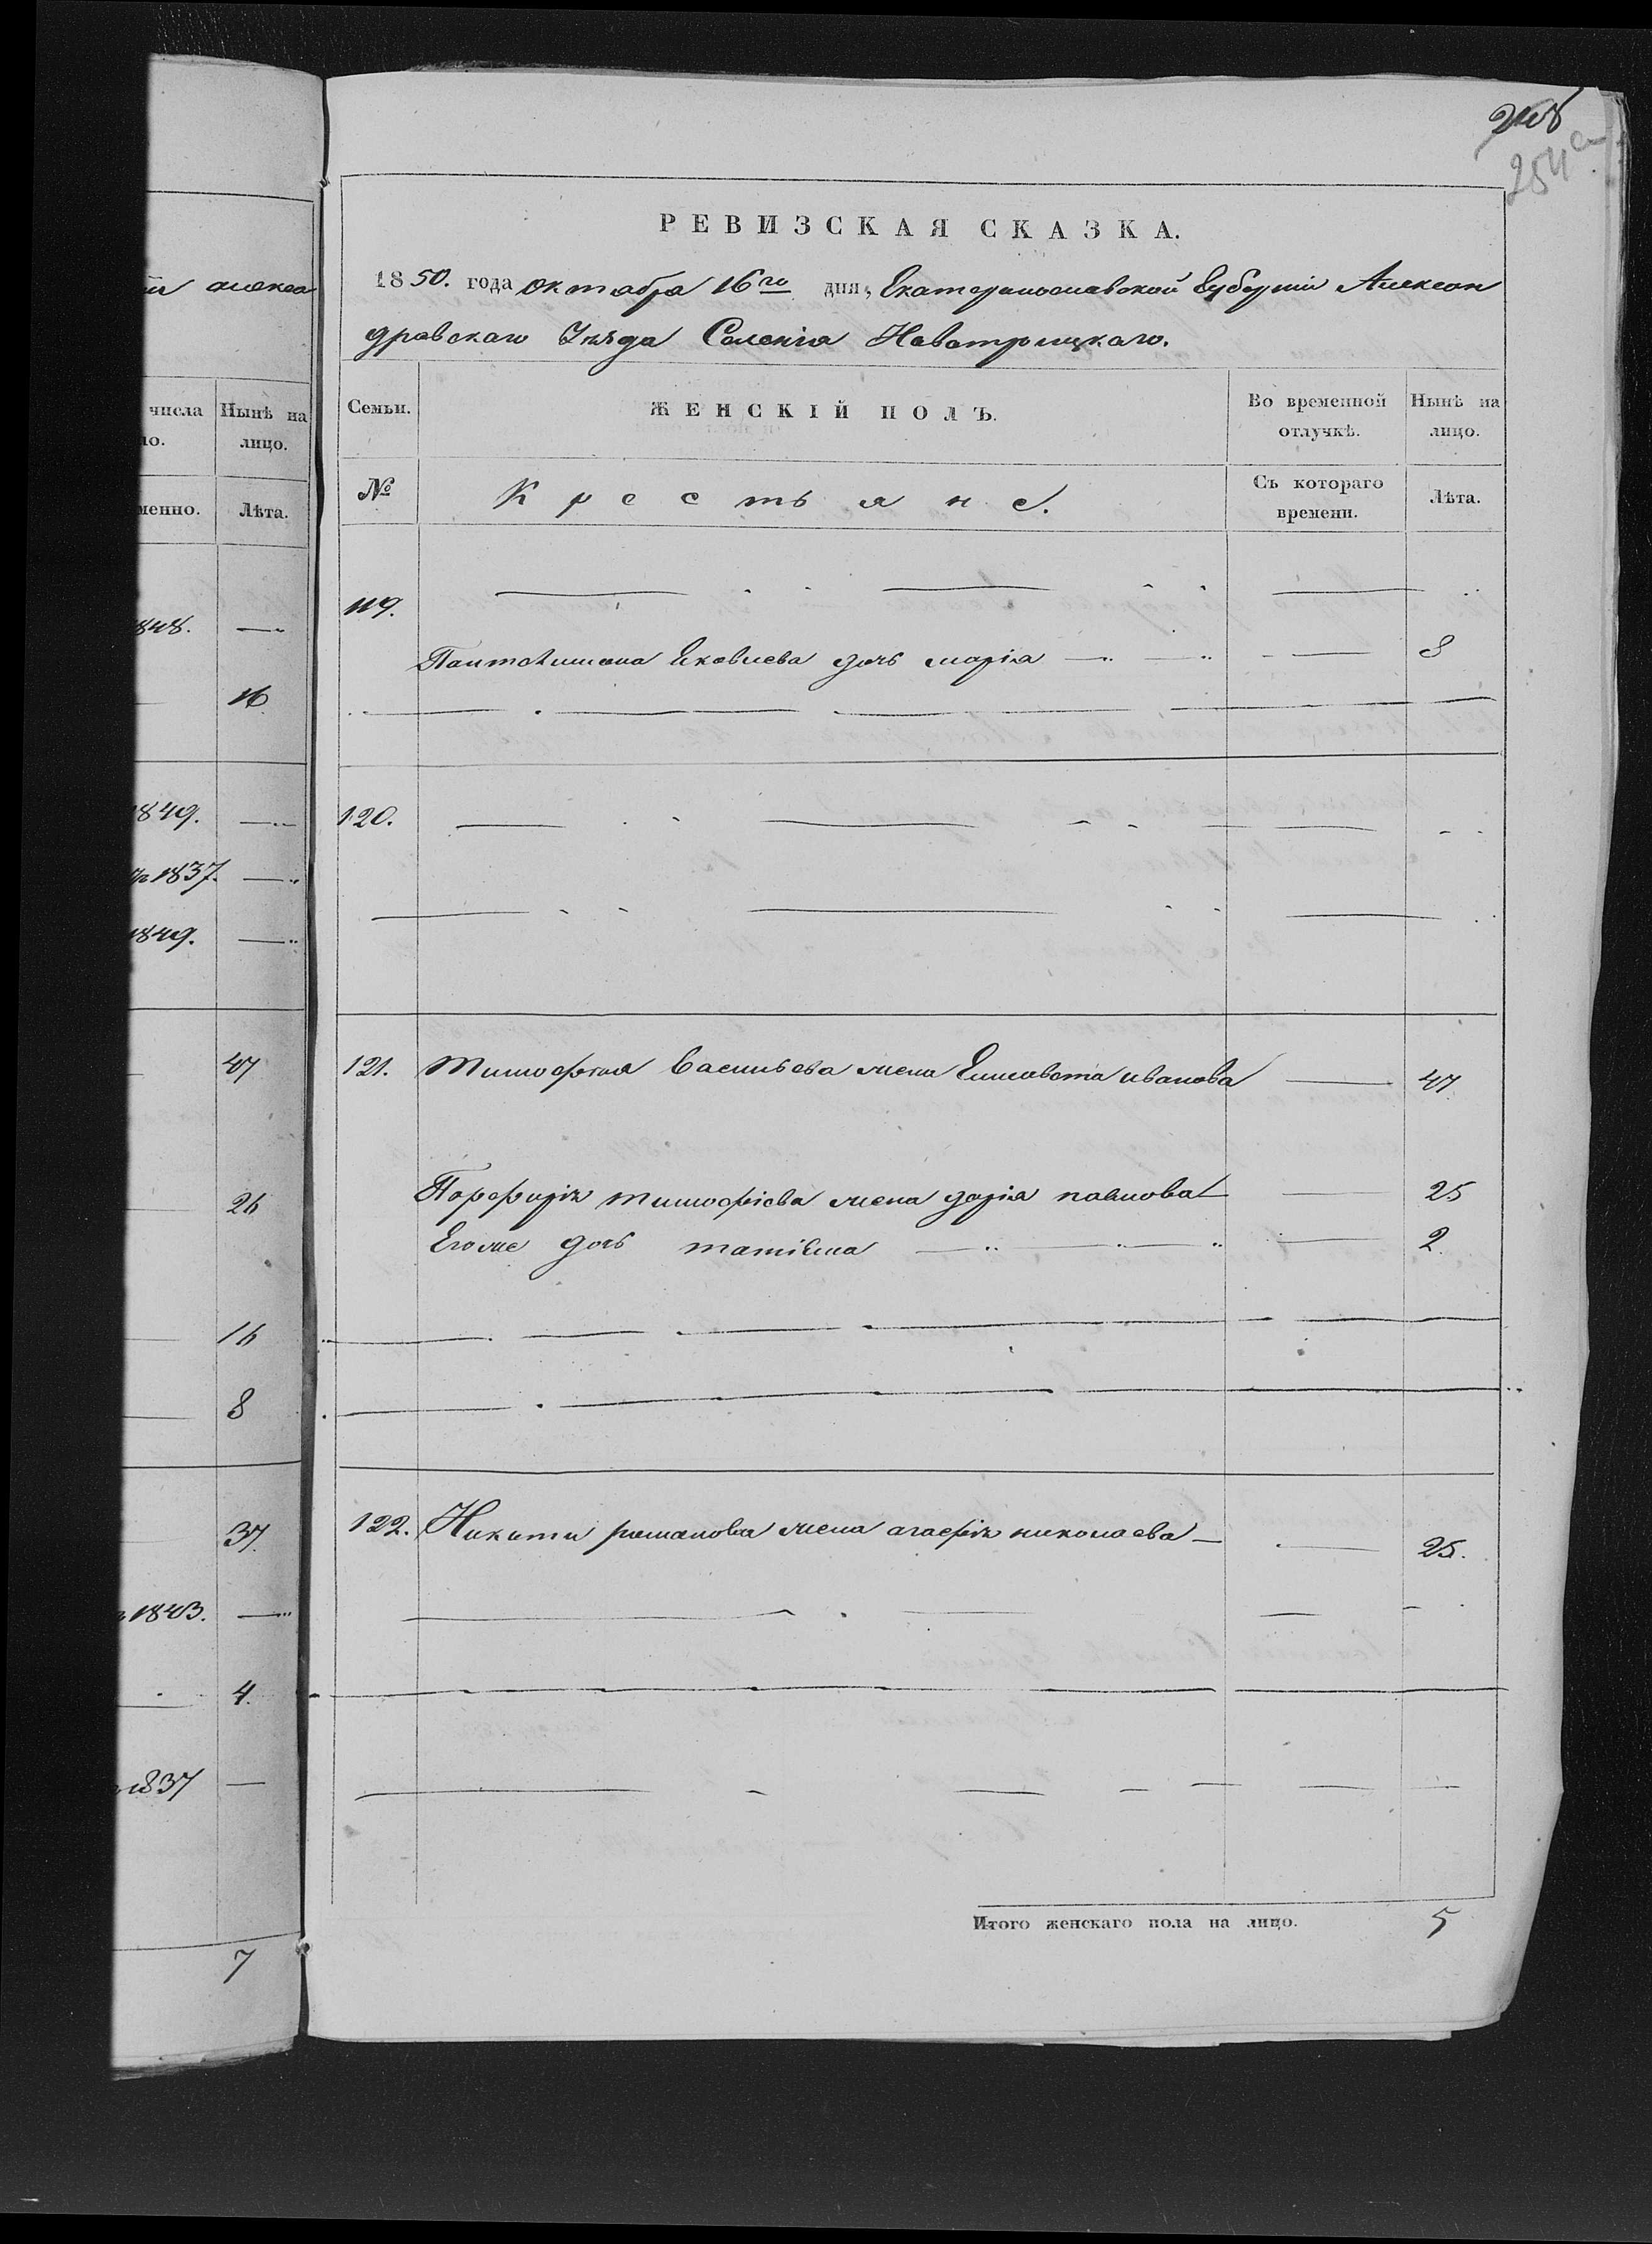 254
РЕВИЗСКАЯ СКАЗКА.
1850. года октября 16го дня, Екатеринославской Губерніи Алексан
дровскаго Уѣзда Селенія Новотроицкаго.
алекса
числа
Нынѣ на
лицо.
менно.
Лѣта.
Семьи.
ЖЕНСКІЙ ПОЛЪ.
Во временной
отлучкѣ.
Нынѣ на
лицо.
№
Крестьяне.
Съ котораго
времени.
Лѣта.
1848. —
16
1849. —
1837. —
1849. —
47
26
16
8
37
1843. —
4.
1837 —
7
119.
Пантелимона Яковлева дочь марія — — — 8
120.
121. Тимофея Васильева жена Елисавета иванова — 47
Порфирія тимофіева жена дарія павлова — 25
Егоже дочь татіяна — — — 2
122. Никиты романова жена агафія николаева — 25.
Итого женскаго пола на лицо. 5